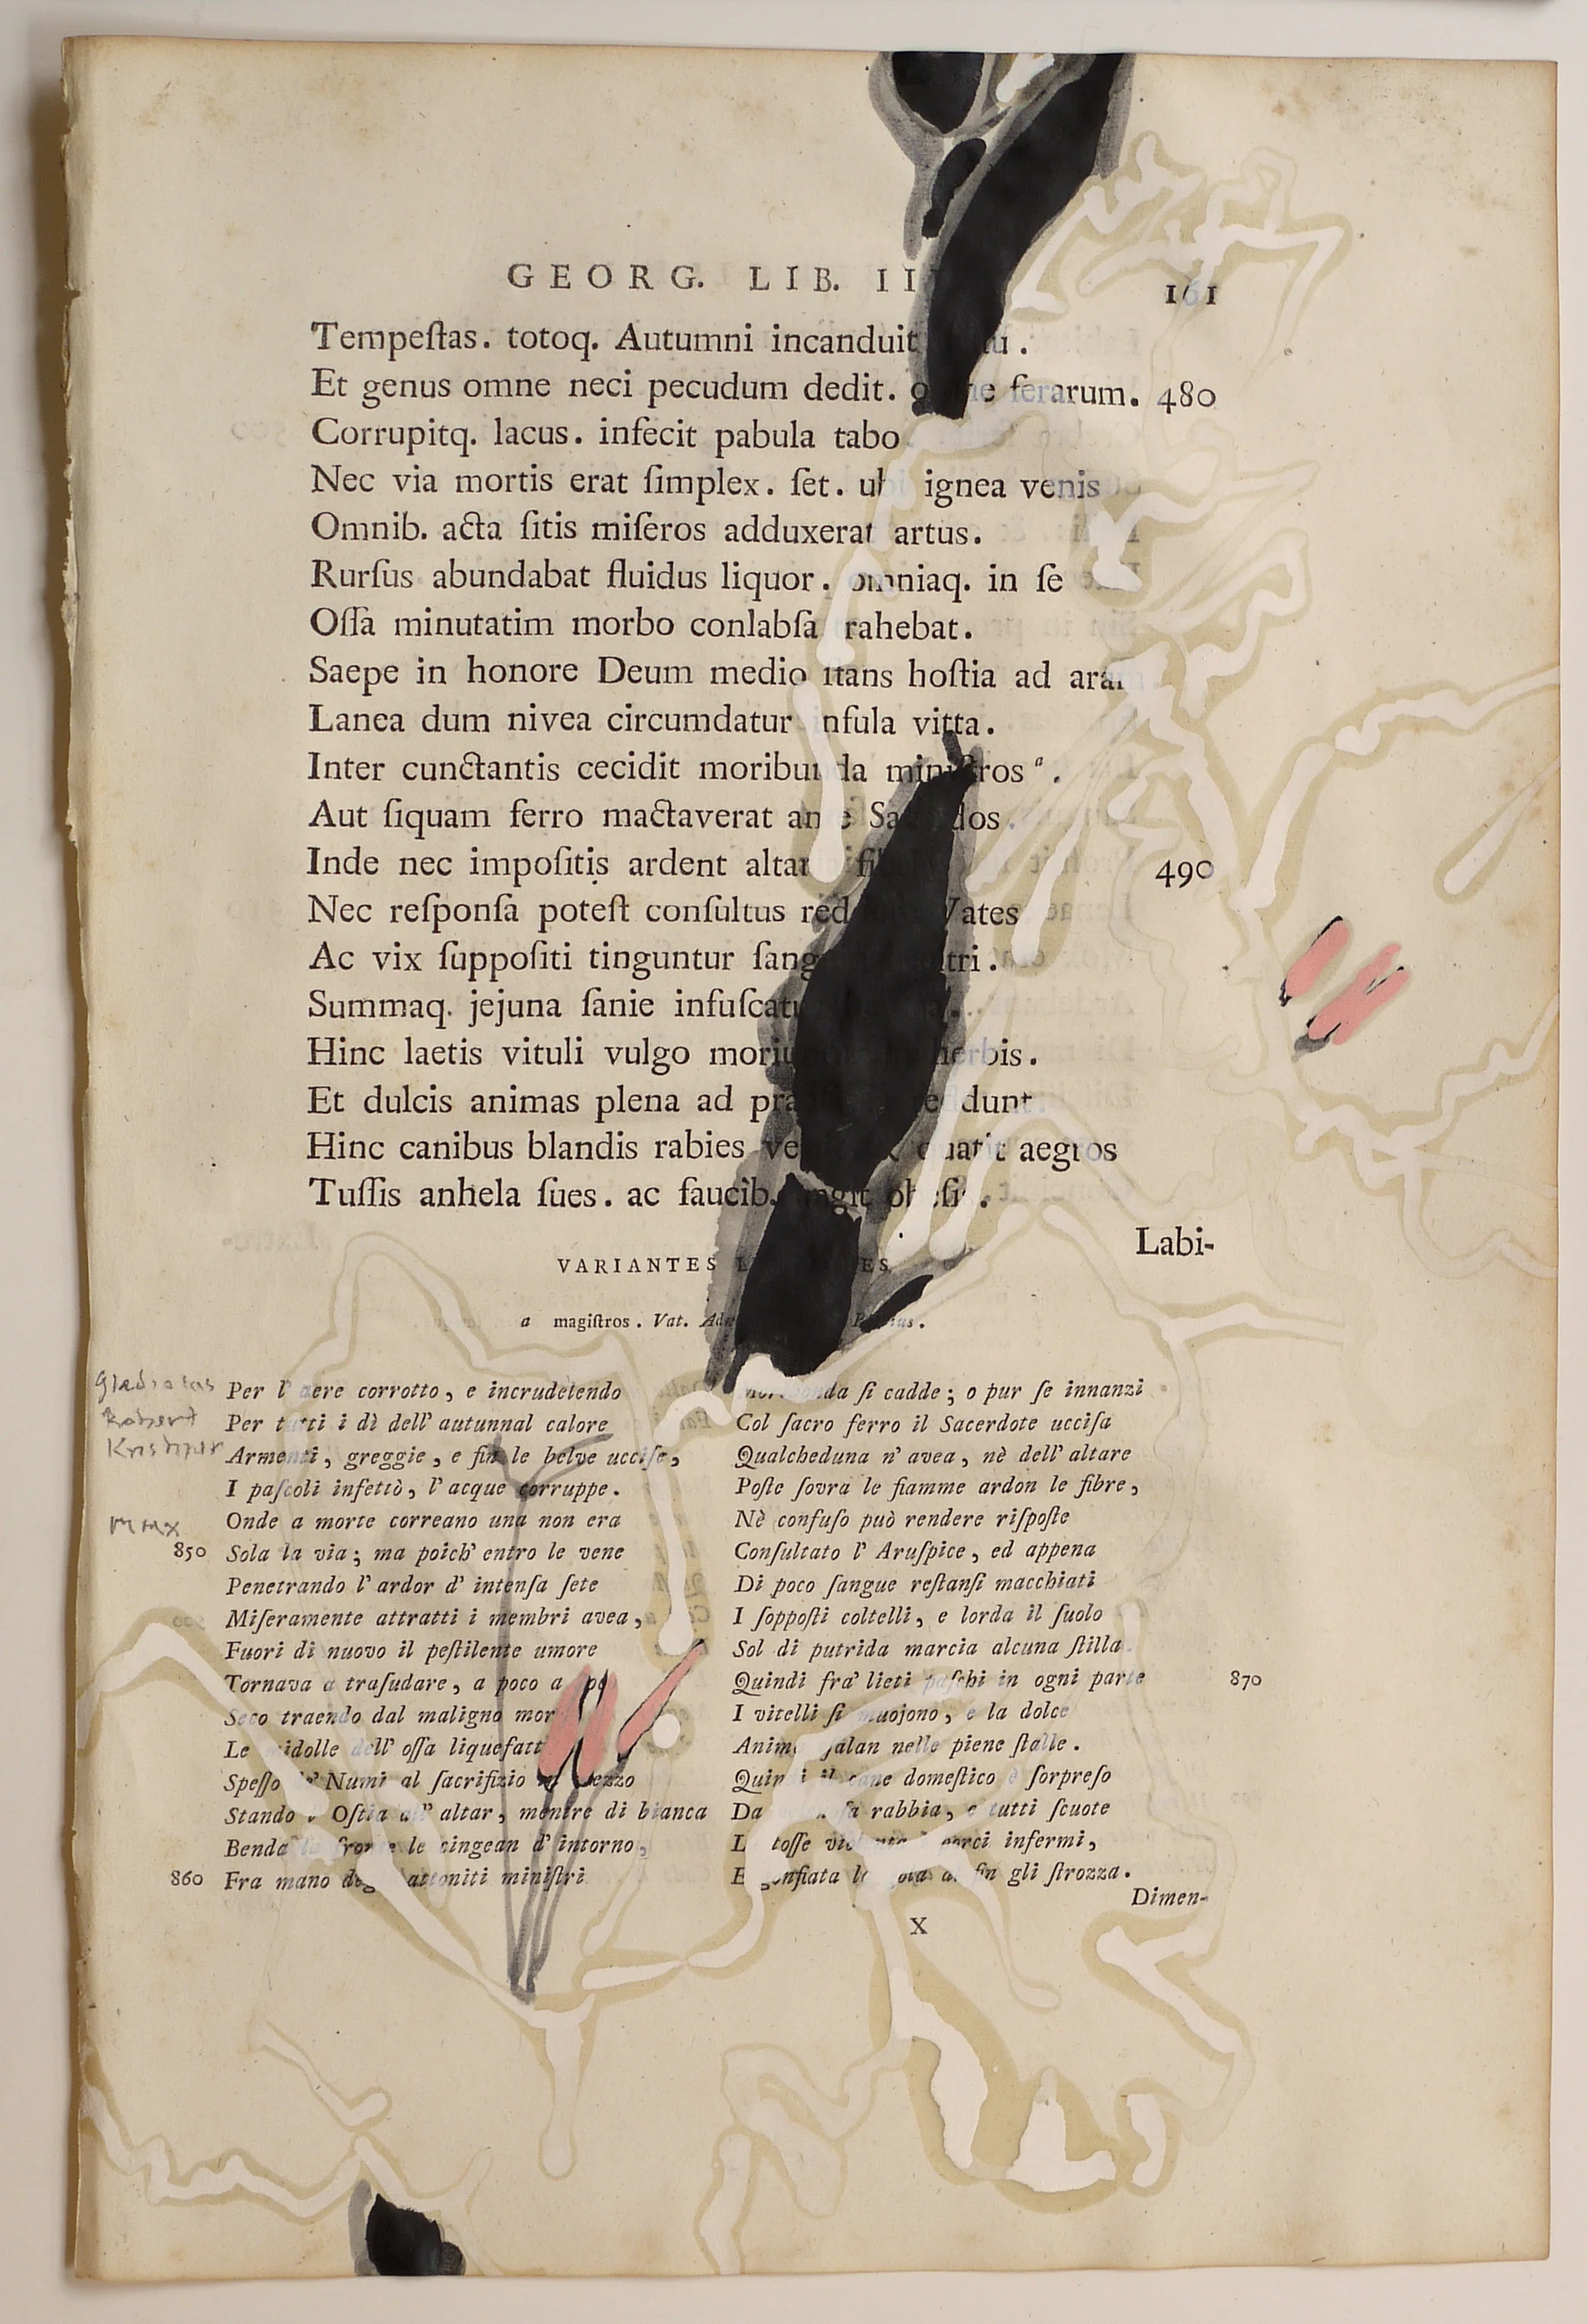 GEORG. LIB.
161
Tempeſtas. totoq. Autumni incanduit
Et genus omne neci pecudum dedit. ferarum. 480
Corrupitq. lacus. infecit pabula tabo
Nec via mortis erat ſimplex. ſet. ignea venis
Omnib. acta ſitis miſeros adduxerat artus.
Rurſus abundabat fluidus liquor. omniaq. in ſe
Oſſa minutatim morbo conlabſa rahebat.
Saepe in honore Deum medio ſtans hoſtia ad aram
Lanea dum nivea circumdatur nfula vitta.
Inter cunctantis cecidit moribunda miniſtros a.
Aut ſiquam ferro mactaverat dos
Inde nec impoſitis ardent altar 490
Nec reſponſa poteſt conſultus red Vates
Ac vix ſuppoſiti tinguntur ſang tri.
Summaq. jejuna ſanie infuſcatu
Hinc laetis vituli vulgo moriu herbis.
Et dulcis animas plena ad pra dunt
Hinc canibus blandis rabies ve aegros
Tuſſis anhela ſues. ac faucib.
Labi-
VARIANTES
a magiſtros. Vat.
Per l' aere corrotto, e incrudelendo
Per tutti i dì dell' autunnal calore
Robert
Armenti, greggie, e fin le belve ucciſe,
I paſcoli infettò, l' acque corruppe.
Onde a morte correano una non era
max
850 Sola la via; ma poich' entro le vene
Penetrando l' ardor d' intenſa ſete
Miſeramente attratti i membri avea,
Fuori di nuovo il peſtilente umore
Tornava a traſudare, a poco a po
Seco traendo dal maligno mor
Le midolle dell' oſſa liquefatt
Speſſo de' Numi al ſacrifizio mezzo
Stando l' Oſtia all' altar, mentre di bianca
Benda la fronte le cingean d' intorno,
860 Fra mano degl' attoniti miniſtri
moribonda ſi cadde; o pur ſe innanzi
Col ſacro ferro il Sacerdote ucciſa
Qualcheduna n' avea, nè dell' altare
Poſte ſovra le fiamme ardon le fibre,
Nè confuſo può rendere riſpoſte
Conſultato l' Aruſpice, ed appena
Di poco ſangue reſtanſi macchiati
I ſoppoſti coltelli, e lorda il ſuolo
Sol di putrida marcia alcuna ſtilla.
Quindi fra' lieti paſchi in ogni parte 870
I vitelli ſi muojono, e la dolce
Anima eſalan nelle piene ſtalle.
Quindi il cane domeſtico è ſorpreſo
Da rabbia, e tutti ſcuote
toſſe porci infermi,
E gonfiata la gola al fin gli ſtrozza.
Dimen-
X